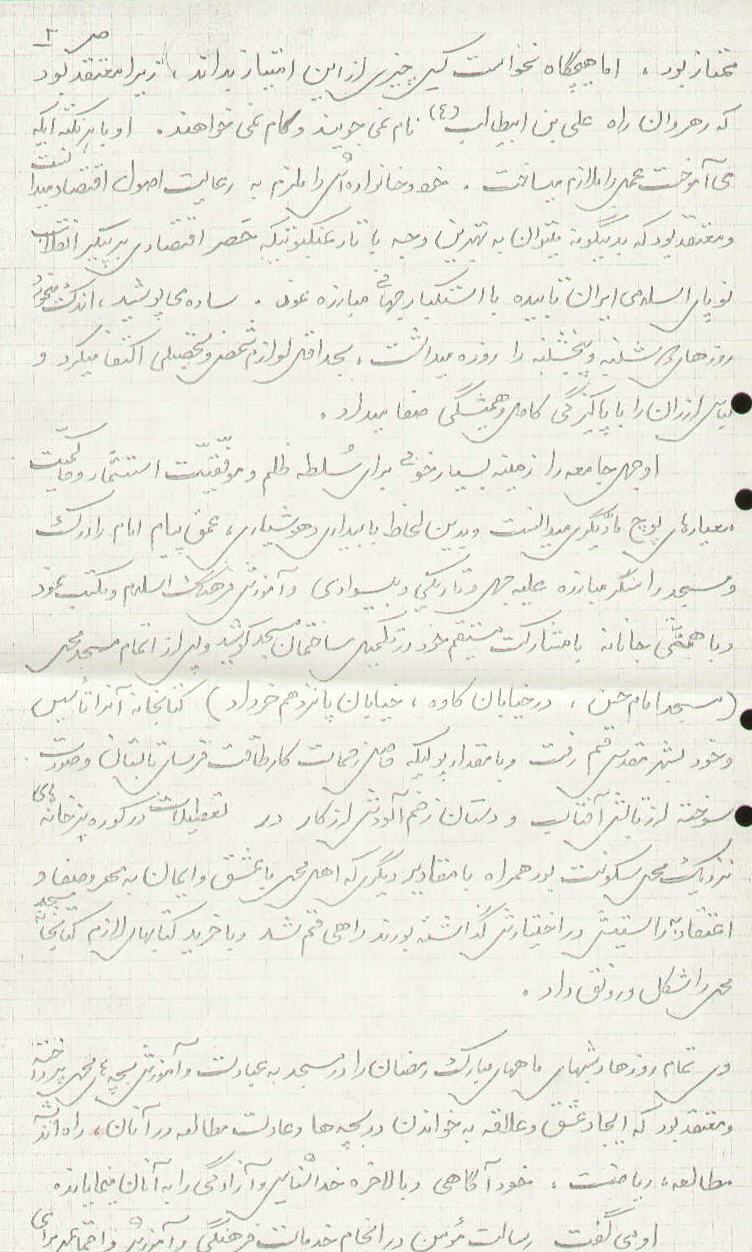 ص ۲
ممتاز بود ، اما هیچگاه نخواست کسی چیزی از این امتیاز بداند ، زیرا معتقد بود
که رهروان راه علی بن ابیطالب (ع) نام نمی جویند و کام نمی خواهند . او با هر نکته ایکه
می آموخت عمل را ملازم میساخت . خود و خانواده اش را ملزم به رعایت اصول اقتصاد میدانست
و معتقد بود که بدینگونه میتوان به بهترین وجه با تار عنکبوتیکه حصر اقتصادی بر پیکر انقلاب
نو پای اسلامی ایران تابیده با استکبار جهانی مبارزه نمود . ساده می پوشید ، اندک میخورد
روزهای دوشنبه و پنجشنبه را روزه میداشت ، بحداقل لوازم شخصی و تحصیلی اکتفا میکرد و
لباس ارزان را با پاکیزگی کامل و همیشگی صفا میداد .
او جهل جامعه را زمینه بسیار خوبی برای سُلطه ظلم و موفقیّت استثمار و حاکمیّت
معیارهای پوچ مادیگری میدانست و بدین لحاظ با بیداری و هوشیاری ، عمق پیام امام را درک
و مسجد را سنگر مبارزه علیه جهل و تاریکی و بیسوادی و آموزش فرهنگ اسلام و مکتب نمود
و با همتی جانانه با مشارکت مستقیم خود در تکمیل ساختمان مسجد کوشید و پس از اتمام مسجد محل
(مسجد امام حسن ، در خیابان کاوه ، خیابان پانزدهم خرداد) کتابخانه آنرا تأسیس
و خود بشهر مقدس قم رفت و با مقدار پولیکه حاصل زحمات کار طاقت فرسای تابستان و صورت
سوخته از تابش آفتاب و دستان زخم آلودش از کار در تعطیلات در کوره پزخانه های
نزدیک محل سکونت بود همراه با مقادیر دیگری که اهل محل با عشق و ایمان به مهر و صفا و
اعتقاد راستینش در اختیارش گذاشته بودند راهی قم شد و با خرید کتابهای لازم کتابخانه مسجد
محل را شکل و رونق داد .
وی تمام روزها و شبهای ماههای مبارک رمضان را در مسجد به عبادت و آموزش بچه های محل پرداخته
و معتقد بود که ایجاد عشق و علاقه به خواندن در بچه ها و عادت مطالعه در آنان ، راه اندیشه
مطالعه ، ریاضت ، خودآگاهی و بالاخره خداشناسی و آزادگی را به آنان مینمایاند
او می گفت رسالت مؤمن در انجام خدمات فرهنگی و آموزشی و اجتماعی برای